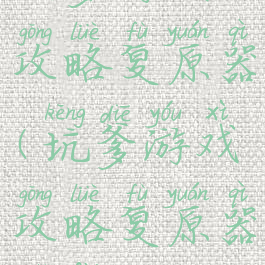 gōng lüè fù yuán qì
攻略复原器
kēng diē yóu xì
(坑爹游戏
gōng lüè fù yuán qì
攻略复原器